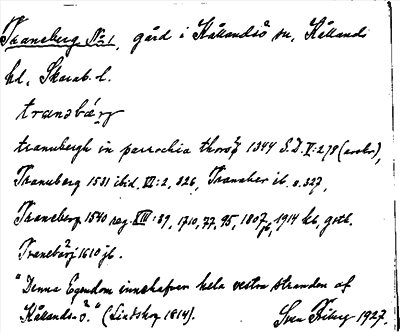 Traneberg No 1, gård i Kållandsö sn, Kållands
hd, Skarab. l.
transbärg
tranubergh in parrochia thorsø 1344 S.D. V:278 (avskr),
Tranuberg 1531 ibid. VI:2, 326, Tranaber ib. s. 327,
Traneberg 1540 reg. XIII:89, 1710, 77, 95, 1807 jb, 1914 kb, gsk.
Tranebärg 1610 jb.
"Denna Egendom innehafver hela vestra stranden af
Kållands-ö." (Lindskog 1814). Sven Ekberg 1927.